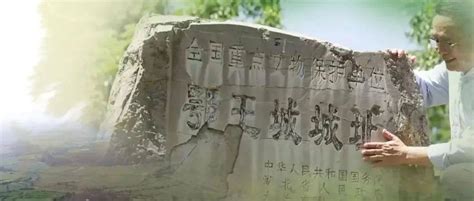 全国重点文物保护单位
鄂王城城址
中华人民共和国国务院
人民